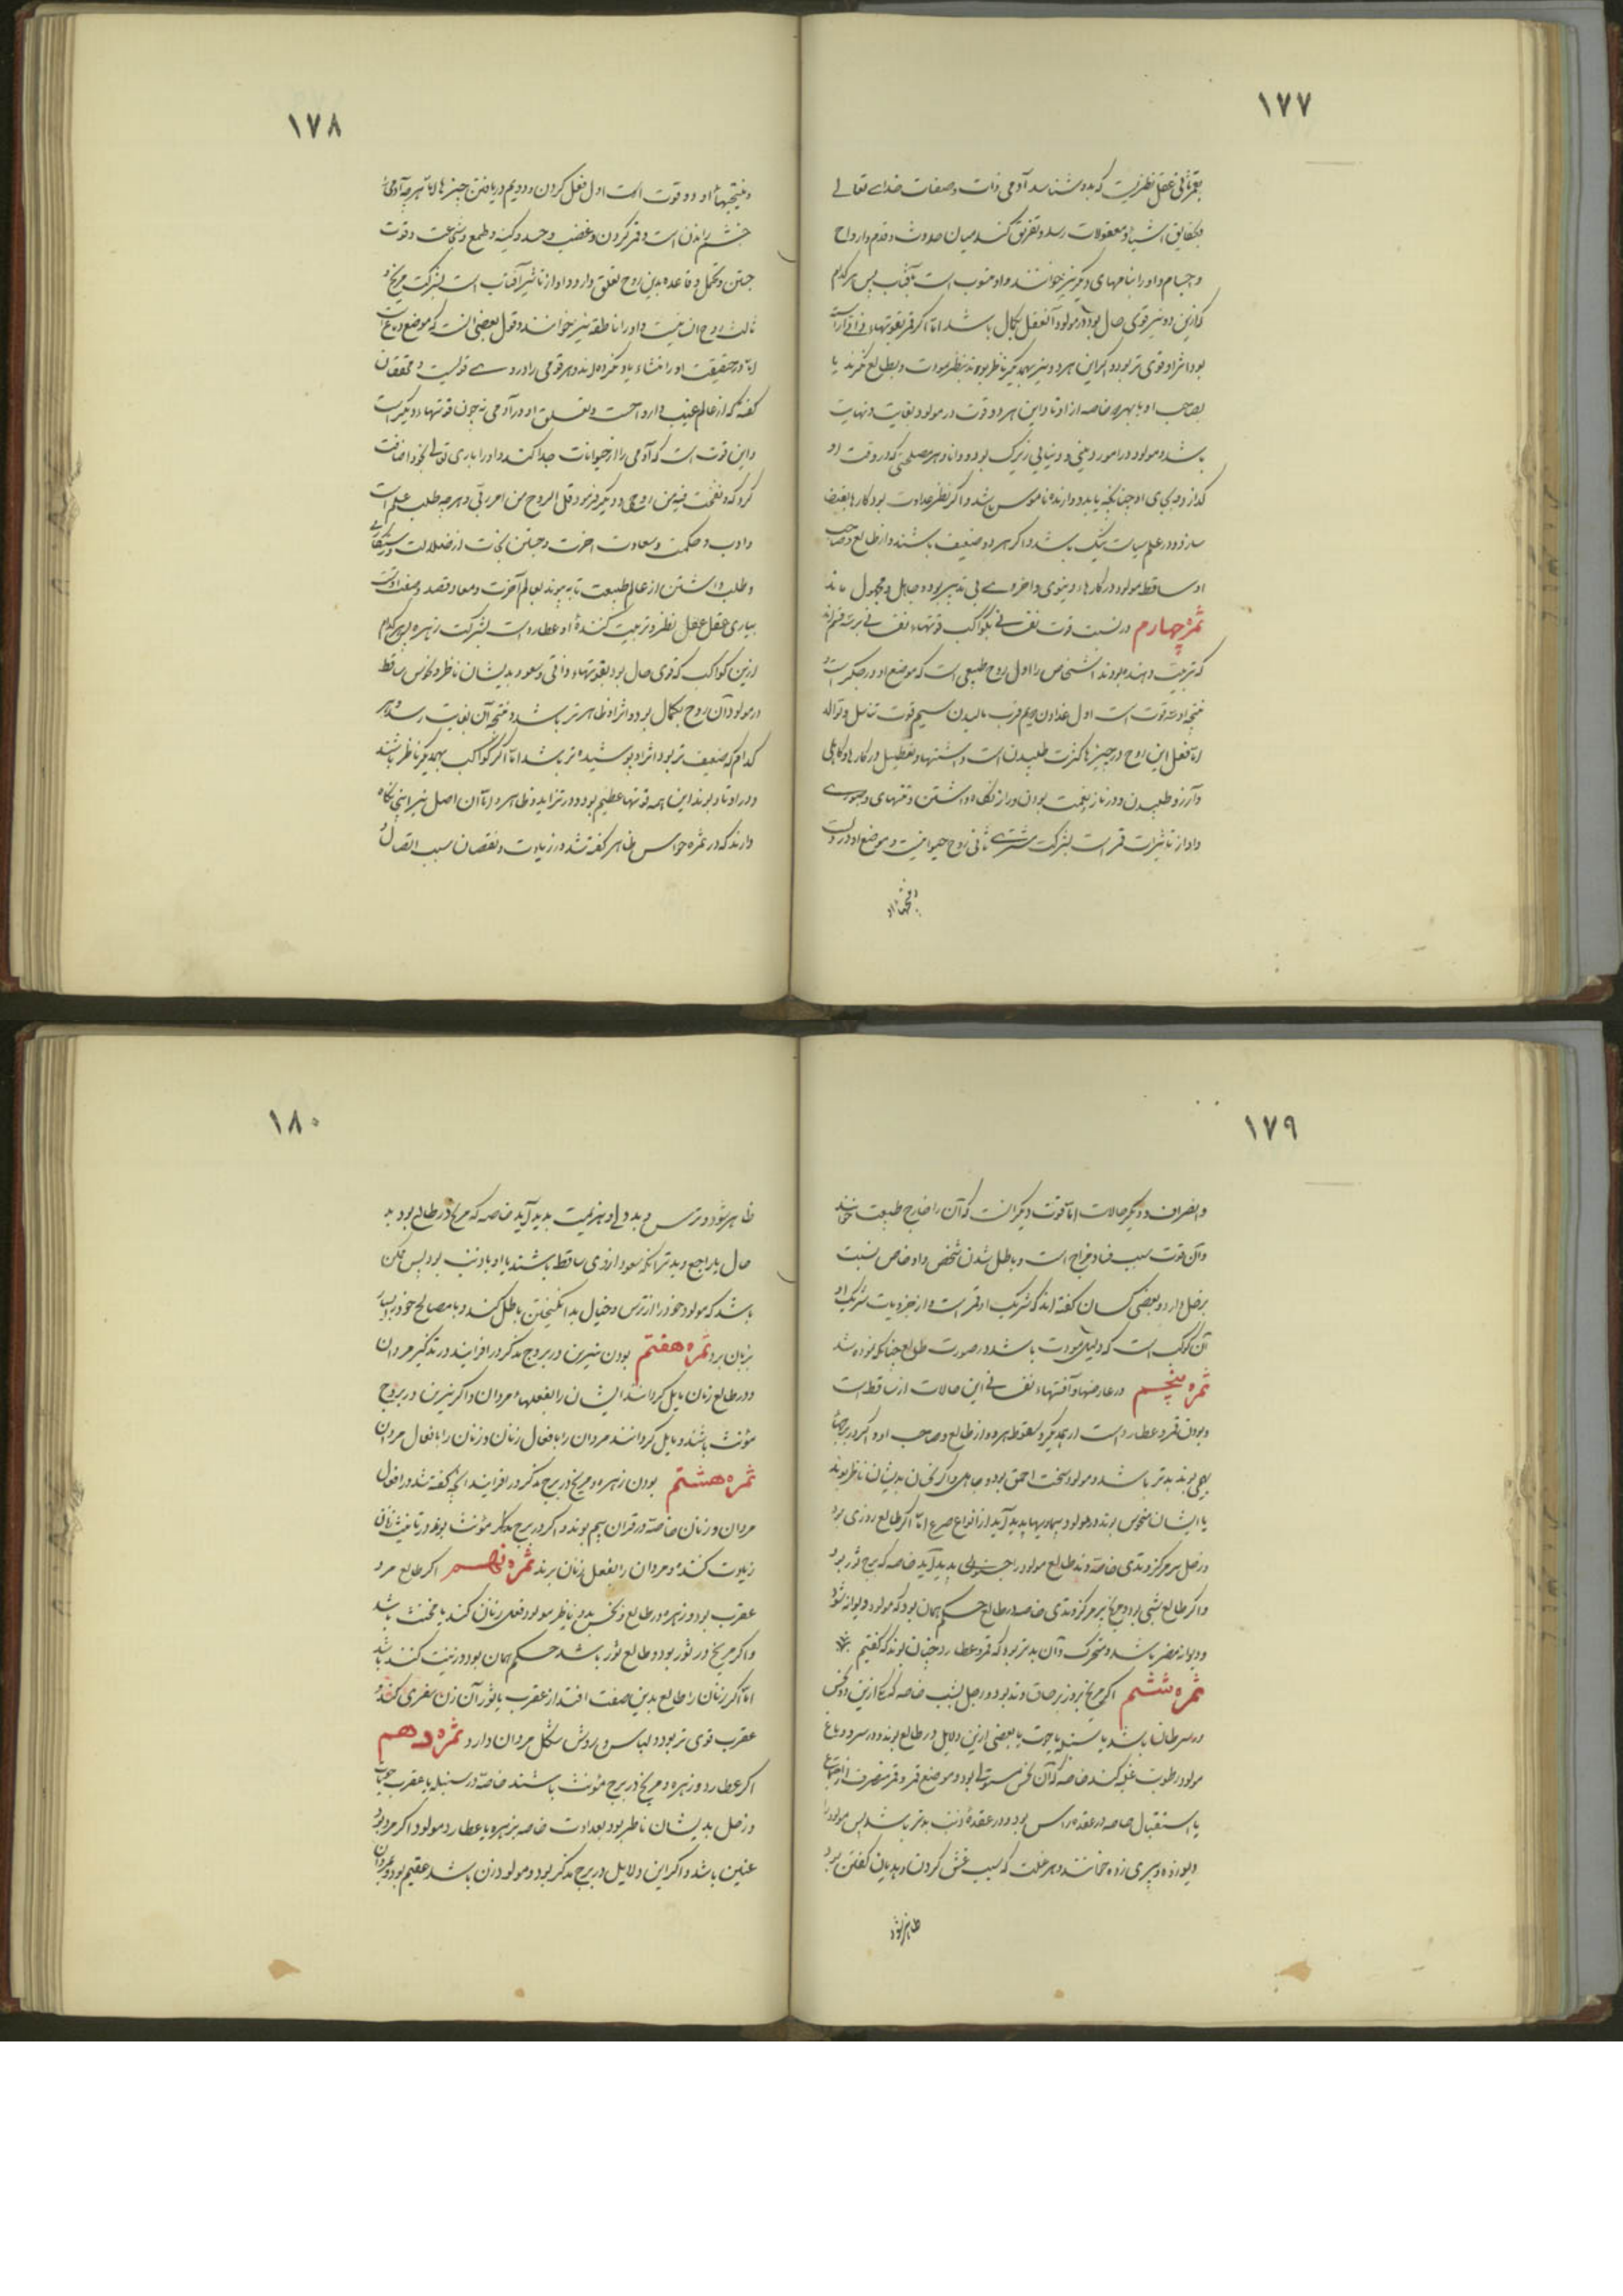 ١٧٧
عقل نظریست که بدو شناسد آدمی ذات و صفات خدای تعالی
بحقایق اشیا و معقولات رسد و تفریق کند میان حدوث و قدم و ارواح
و اجسام و او را بنامهای دیگر نیز خوانند و او منسوب است بآفتاب پس هر کدام
که ازین دو نیر قوی حال بود در مولود آن عقل بکمال باشد اما اگر قمر بقوتهاء ذاتی آراسته
بود اثر او قوی تر بود و اگر این هر دو نیر بهمدیگر ناظر بوند بنظر مودت و بطالع نگرند یا
بصاحب او یا بهره خاصه از اوتاد این هر دو قوت در مولود بغایت و نهایت
باشد و مولود در امور دینی و دنیایی زیرک بود و دانا و هر مصلحتی که در وقت او
سازد و در علم سیاست نیک باشد و اگر هر دو ضعیف باشند و از طالع و صاحب
او ساقط مولود در کارهاء دنیوی و اخروی بی تدبیر بود و جاهل و مجهول ماند
ثمره چهارم در نسبت قوت نفسانی بکواکب قوتهاء نفسانی بر سه قسم اند
که تربیت دهنده بودند اشخاص را اول روح طبیعی است که موضع او در جگر است و
نتیجه او سه قوت است اول غذا دادن دویم قرب بالیدن سیم قوت تناسل و توالد
اما فعل این روح در چیزها کثرت طلبیدن است و اشتها و تعطیل در کارها و کاهلی
و آرزو طلبیدن و در ناز و نعمت بودن و راز نگاه داشتن و تنهای و صبوری
و او از تاثیرات قمر است بشرکت مشتری ثانی روح حیوانیست و موضع او در دلست
و نتیجهاء او
١٧٨
و نتیجهاء او دو قوت است اول فعل کردن و دویم دریافتن چیزها اما هر چه آدمی را
خشم راندن است و قهر کردن و غضب و حسد و کینه و طمع و شجاعت و قوت
جستن و تحمل و قاعده بدین روح تعلق دارد و او از تاثیر آفتاب است بشرکت مریخ و
ثالث روح انسانیست و او را ناطقه نیز خوانند و قول بعضی آنست که موضع دماغ است
اما در حقیقت او را منشاء یاد نکرده اند و هر قومی را درو قولیست و محققان
گفته که از عالم غیب وارد است و تعلق او در آدمی نه چون قوتهاء دیگر است
و این قوت است که آدمی را از حیوانات جدا کند و او را باری تعالی بخود اضافت
کرد که و نفخت فیه من روحی و دیگر فرمود قل الروح من امر ربی و هر چه طلب علم است
و ادب و حکمت و سعادت آخرت و جستن نجات از ضلالت و رستگاری
و طلب داشتن از عالم طبیعت تا به پیوند بعالم آخرت و معاد قصد و صفت اوست
بیاری عقل عقل نظر و تربیت کنندۀ او عطارد است بشرکت زهره پس هر کدام
ازین کواکب که قوی حال بود بقوتهاء ذاتی و سعود بدیشان ناظر و نحوس ساقط
در مولود آن روح بکمال بود و اثر او ظاهر تر باشد و نتیجه آن بغایت رسد و هر
کدام که ضعیف تر بود اثر او پوشیده تر باشد اما اگر کواکب بهمدیگر ناظر باشند
و در اوتاد بوند این همه قوتها عظیم بود و در تزاید و ظاهر و اما آن اصل نیز اینجا نگاه
دارند که در ثمره حواس ظاهر گفته شد در زیادت و نقصان بسبب اتصال و
١٧٩
و انصراف و دیگر حالات اما قوت دیگر آنست که آن را خارج طبیعت خوانند
و آن قوت سبب فساد مزاج است و باطل شدن شخص و او خاص نسبت
بزحل دارد و بعضی کسان گفته اند که شریک او قمر است و از جزویات شریک او
آن کوکب است که دلیل مودت باشد در صورت طالع چنانکه نموده شد
ثمره پنجم در عارضها و آفتهاء نفسانی این حالات از ساقط است
و بودن قمر و عطارد است از یکدیگر و سقوط هر دو از طالع و صاحب او و اگر در برجهاء
بهمی بوند بدتر باشد و مولود سخت احمق بود و جاهل و اگر نحسان بدیشان ناظر بوند
یا ایشان منحوس بوند در مولود بیماریها پدید آید از انواع صرع اما اگر طالع روزی بود
و زحل بر مرکز وتدی خاصه وتد طالع مولود را جنونی پدید آید خاصه که برج ثور بود
و اگر طالع شبی بود و مریخ بر مرکز وتدی خاصه در طالع حکم همان بود که مولود دیوانه شود
و دیوانه مضر باشد و متحرک و آن بدتر بود که قمر و عطارد چنان بوند که گفتیم
ثمره ششم اگر مریخ بروز بر صاق وتد بود و زحل بشب خاصه که ازین دو نحس
در سرطان باشد یا سنبله یا حوت یا بعضی ازین دلایل در طالع بوند و در سر و دماغ
مولود رطوبت غلبه کند خاصه که آن نحس مستولی بود و موضع قمر و قمر منصرف از اجتماع
یا استقبال خاصه در عقده راس بود و در عقدۀ ذنب بدتر باشد پس مولود را
دیوزده و پری زده خوانند و هر علت که سبب غش کردن و هذیان گفتن بود
ظاهر شود
١٨٠
ظاهر شود و ترس و بددلی و هزیمت پدید آید خاصه که مریخ در طالع بود بد
حال یا راجع و بدتر آنکه سعود از وی ساقط باشند یا او با ذنب بود پس ممکن
باشد که مولود خود را از ترس و خیال بد انگیختن باطل کند و با مصالح خود بسیار
بزیان برد ثمره هفتم بودن نیرین در بروج مذکر در افزایند در تذکیر مردان
و در طالع زنان مایل گرداند ایشان را بفعلهاء مردان و اگر نیرین در بروج
مؤنث باشند مایل گردانند مردان را بافعال زنان و زنان را بافعال مردان
ثمره هشتم بودن زهره و مریخ در برج مذکر در افزایند آنچه گفته شد در افعال
مردان و زنان خاصه در قران بهم بوند و اگر در برج مؤنث بوند در تانیث زنان
زیادت کنند و مردان را بفعل زنان برند ثمره نهم اگر طالع مرد
عقرب بود و زهره در طالع و نحس بدو ناظر مولود فعل زنان کند یا مخنث باشد
و اگر مریخ در ثور بود و طالع ثور باشد حکم همان بود و زینت کننده باشد
اما اگر زنان را طالع بدین صفت افتد از عقرب یا ثور آن زن سعتری کند و
عقرب قوی تر بود و لباس و روش بشکل مردان دارد ثمره دهم
اگر عطارد و زهره و مریخ در برج مؤنث باشند خاصه در سنبله یا عقرب
و زحل بدیشان ناظر بود بعداوت خاصه بزهره یا عطارد مولود اگر مرد بود
عنین باشد و اگر این دلایل در برج مذکر بود و مولود زن باشد عقیم بود